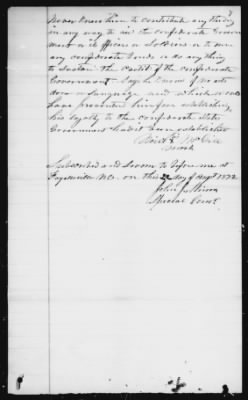 3
never knew him to contribute anything
in any way to aid the Confederate Govern
ment or its officers or Soldiers or to own
any Confederate bonds or do any thing
to Sustain the Credit of the Confederate
Government. Says he knew of no act
done or language used which would
have prevented him from establishing
his loyalty to the Confederate State
Government had it been established
Subscribed and Sworn to before me at
Fayetteville N.C. on this day of Augst 1872
John
Special Comr